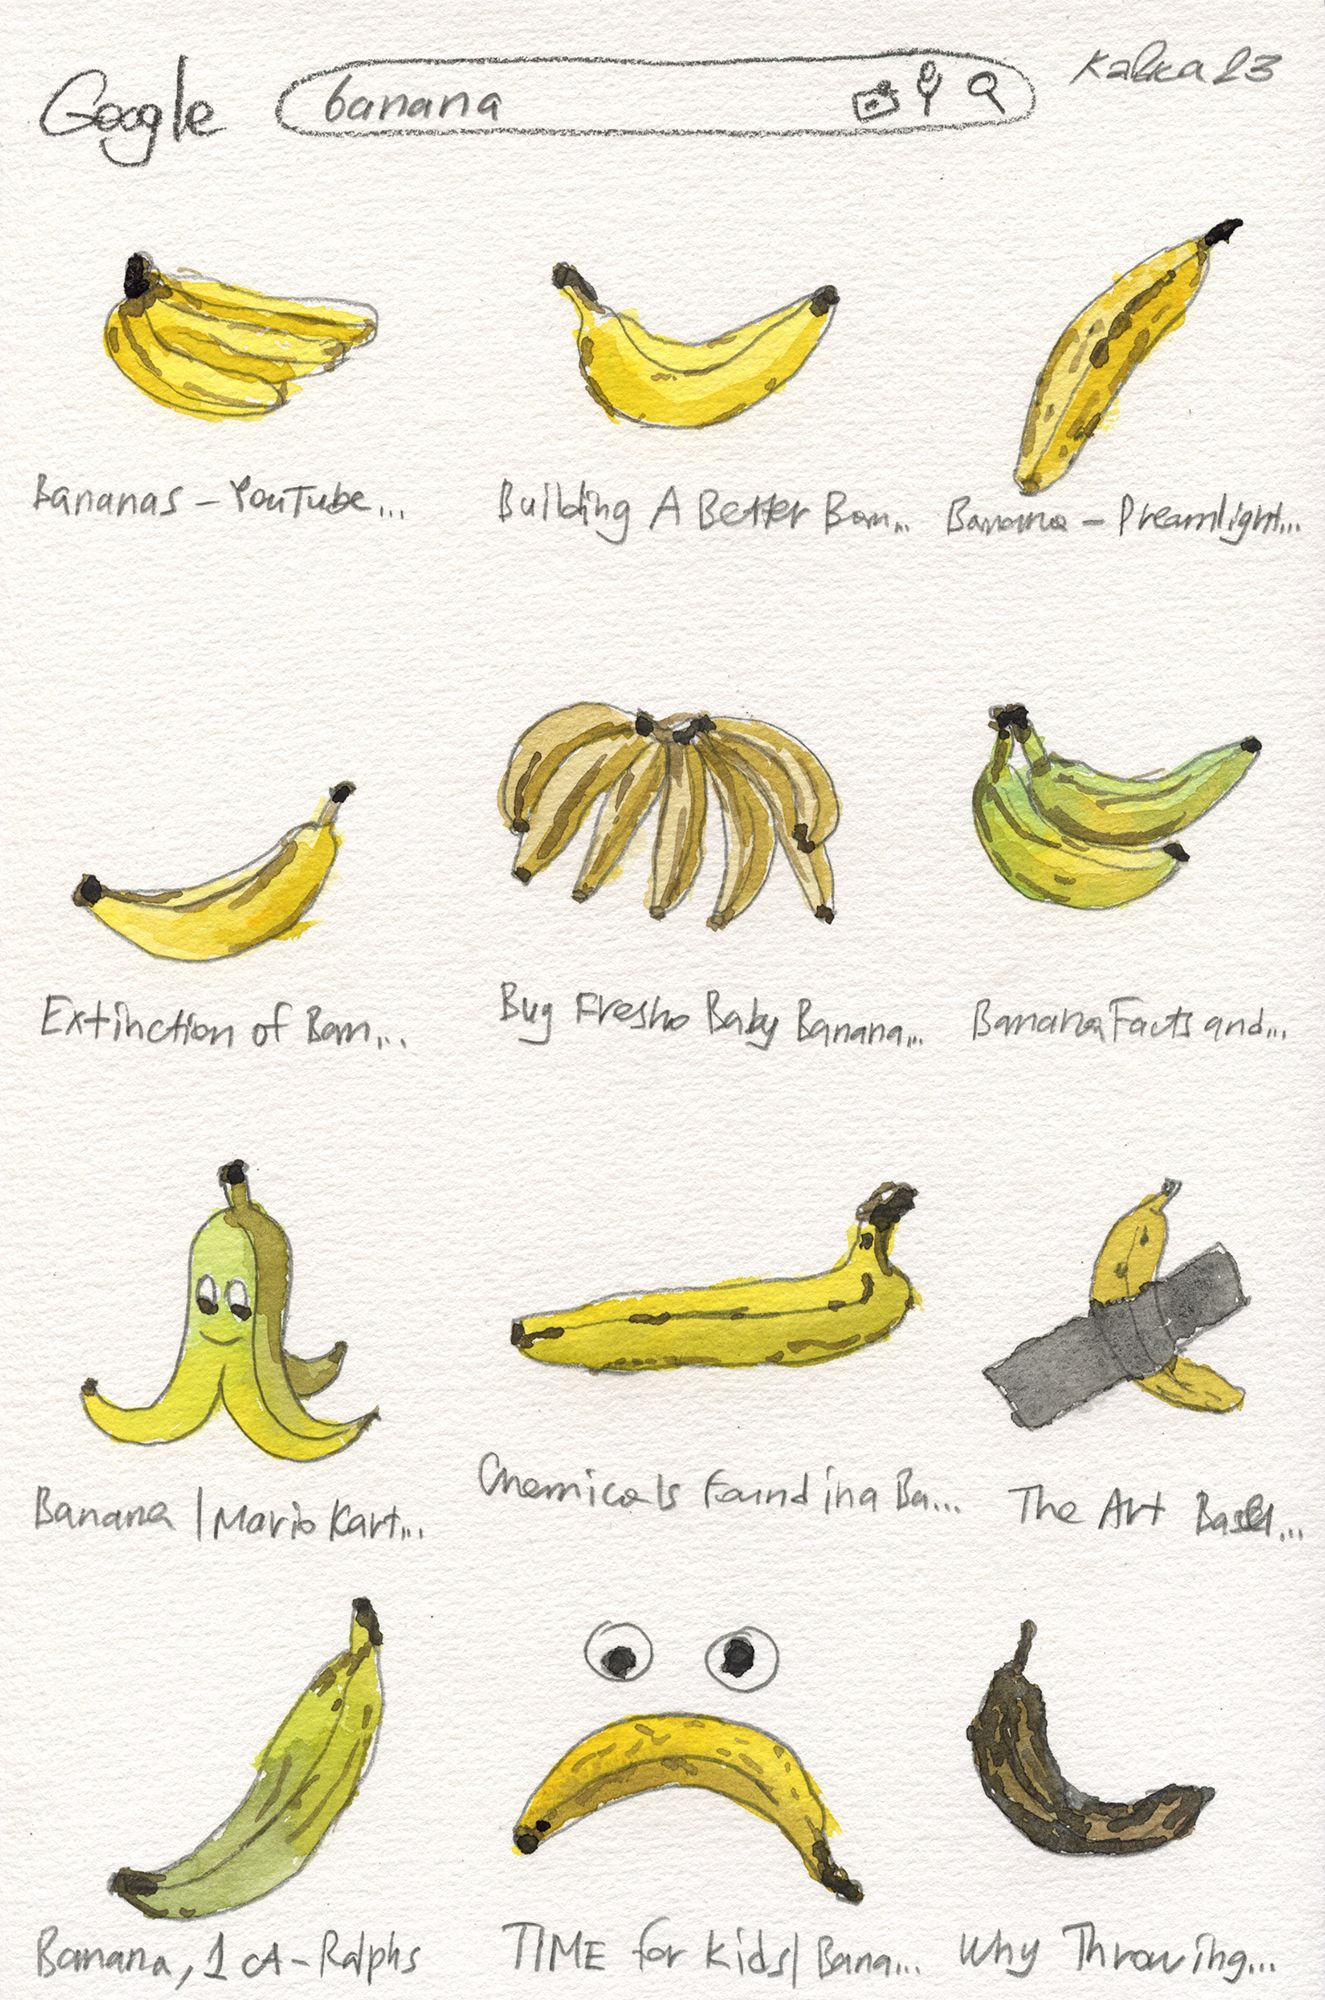 Google
banana
Kalka 23
Bananas – YouTube...
Building A Better Ban...
Banana – Dreamlight...
Extinction of Ban...
Buy Fresho Baby Banana...
Banana Facts and...
Banana | Mario Kart...
Chemicals Found in a Ba...
The Art Basel...
Banana, 1 ct – Ralphs
TIME for Kids | Bana...
Why Throwing...